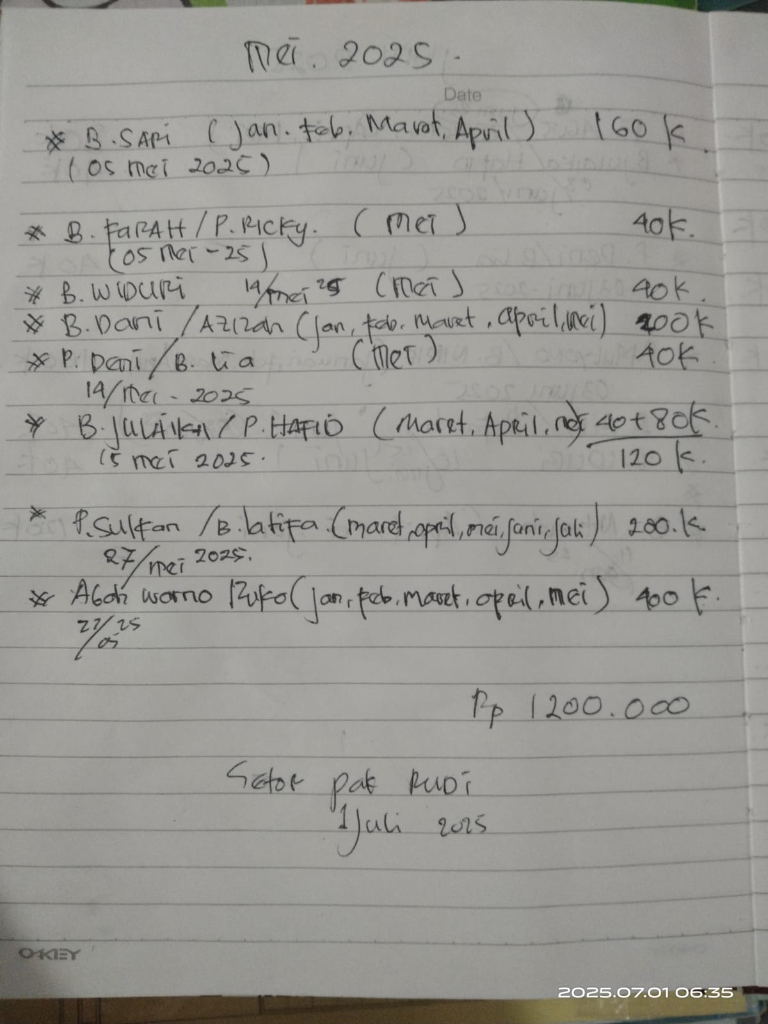 Mei. 2025.
Date
* B. SARI (Jan. Feb. Maret, April) 160 K.
(05 Mei 2025)
* B. FARAH / P. RICKY. (Mei) 40K.
(05 Mei - 25)
* B. WIDURI 14/Mei 25 (Mei) 40K.
* B. Dani / AZIZAH (Jan, Feb. Maret, April, Mei) 200K
* P. Deni / B. Lia (Mei) 40K.
14/Mei - 2025
* B. JULAIKA / P. HAFID (Maret, April, Mei) 40+80K.
15 Mei 2025. 120 K.
* P. Sultan / B. latifa. (maret, april, mei, juni, juli) 200.K.
27/Mei 2025.
* Abah warno Ruko (Jan, Feb, Maret, April, Mei) 400 K.
22/25
/05
Rp 1200.000
Setor pak RUDI
1 Juli 2025
O-KEY
2025.07.01 06:35